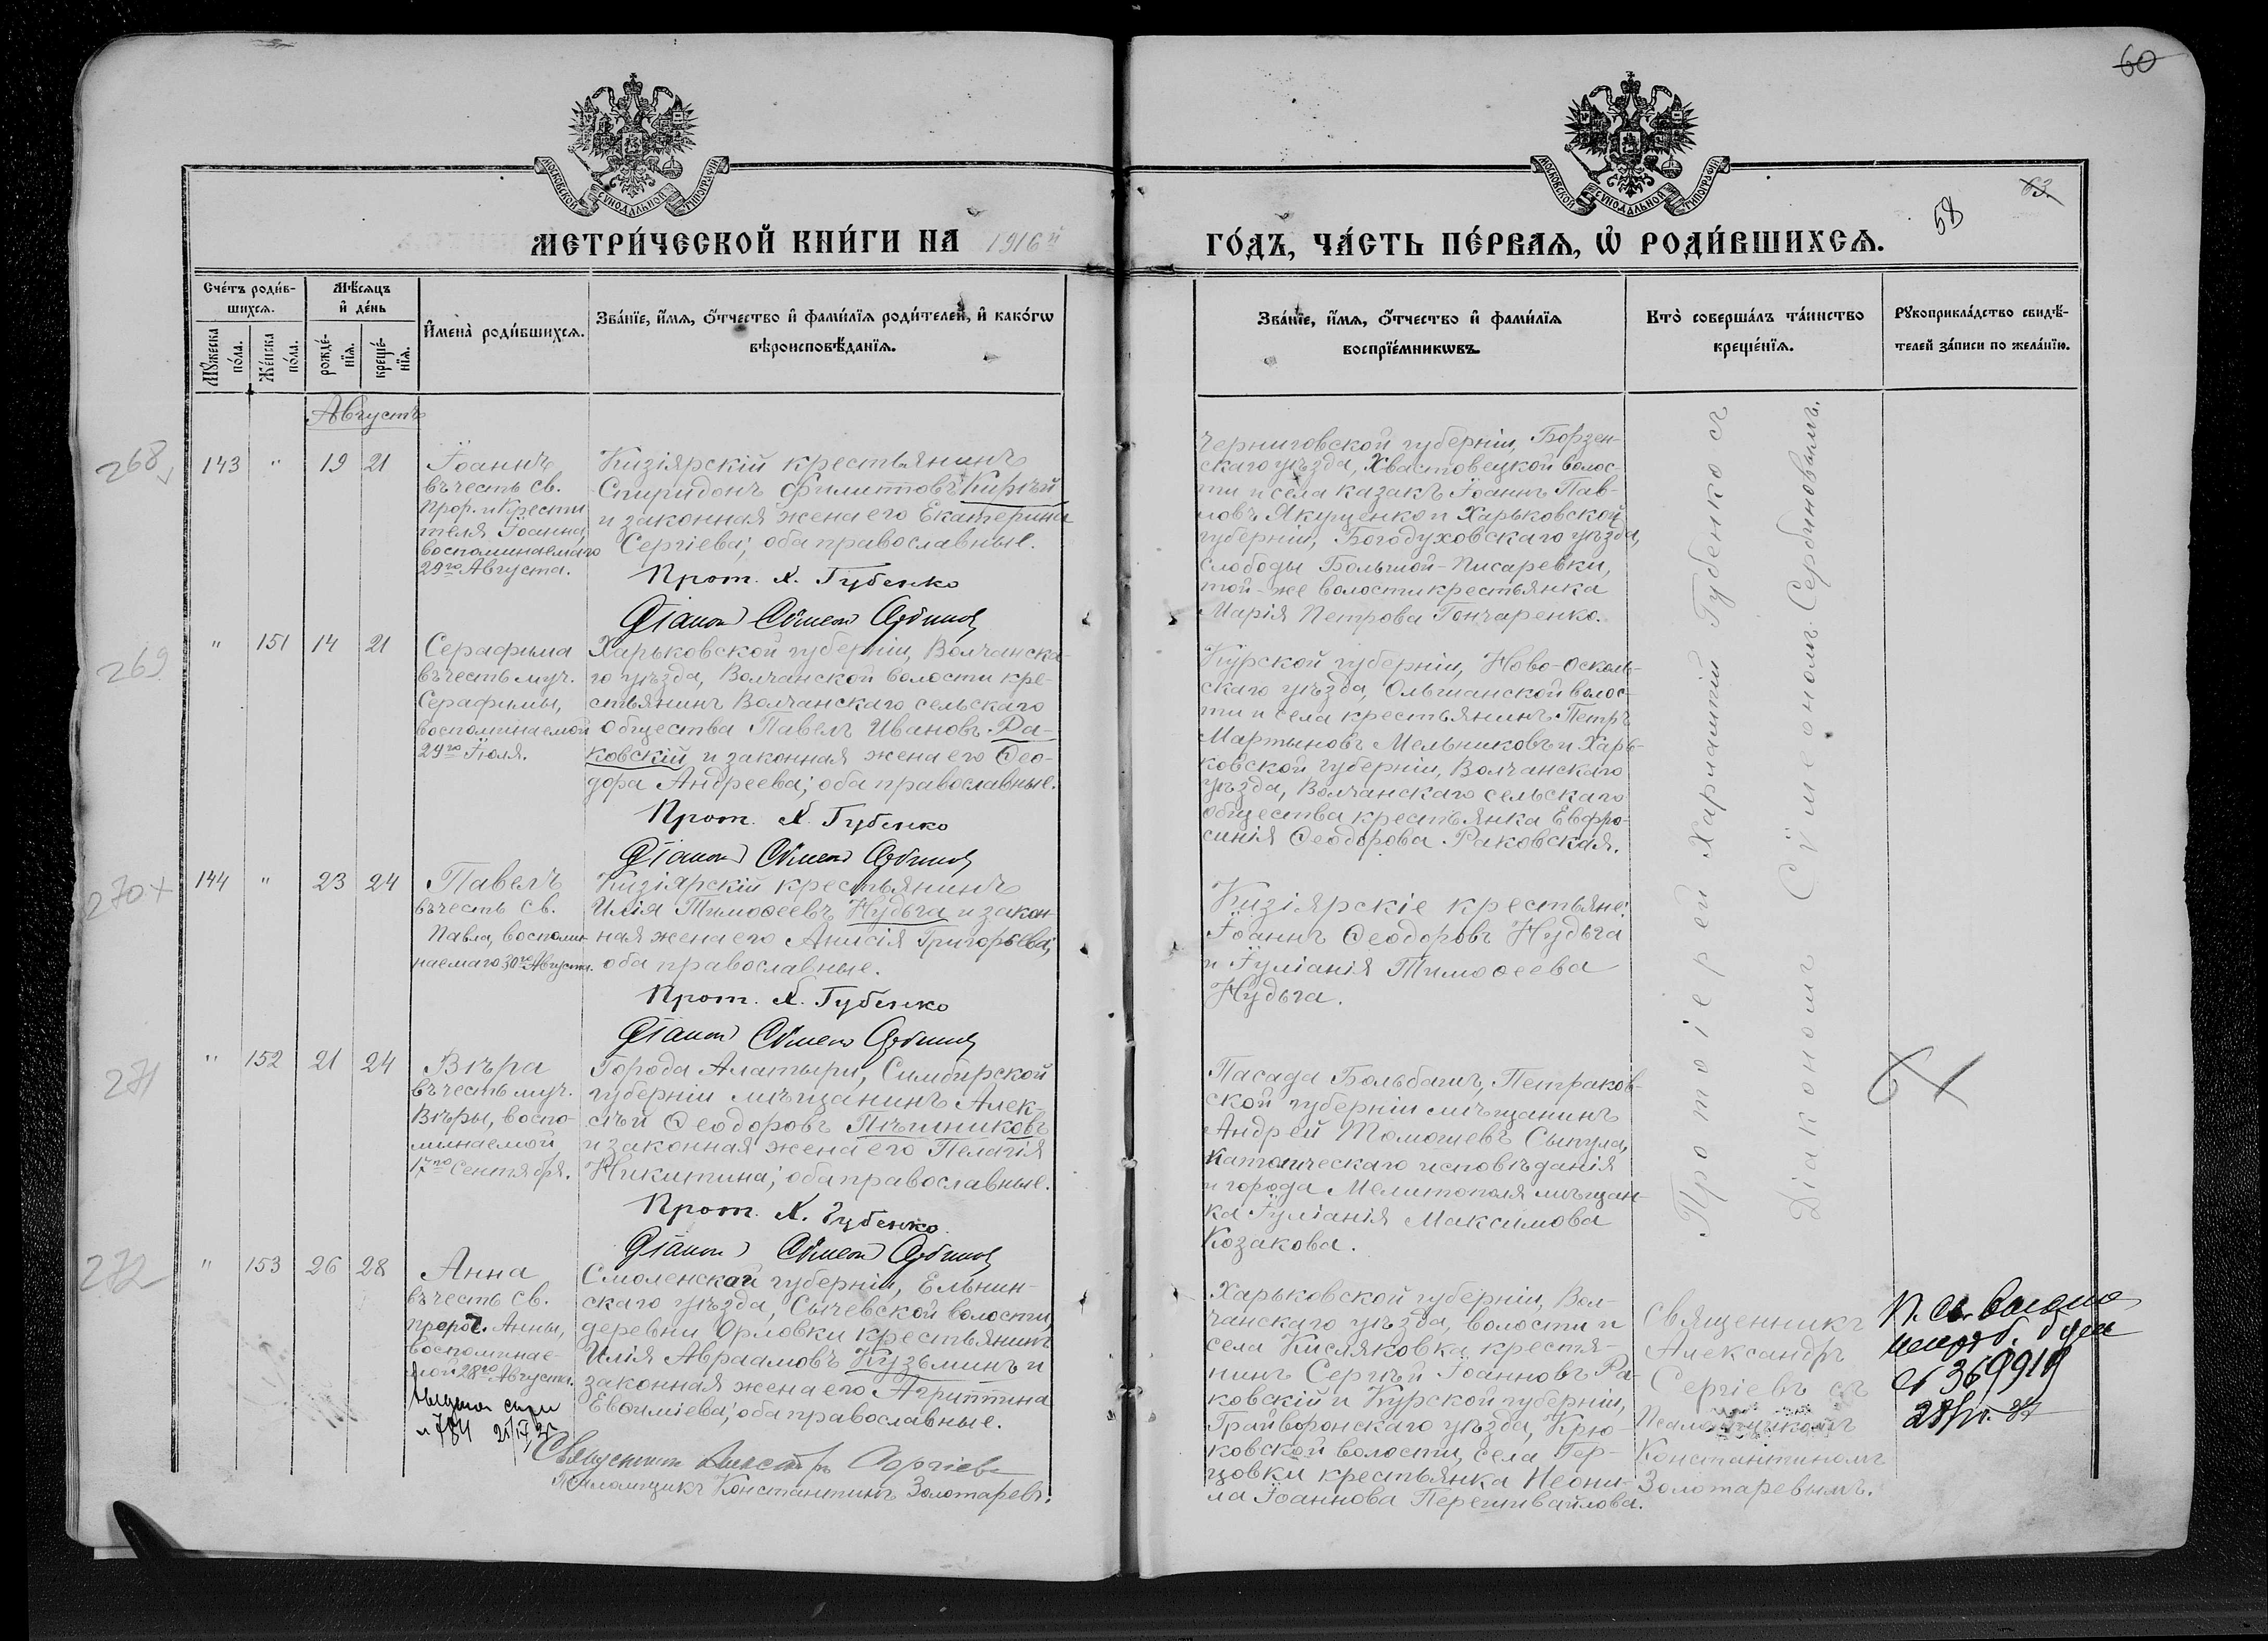 60
МОСКОВСКОЙ СѴНОДАЛЬНОЙ ТИПОГРАФІИ
МОСКОВСКОЙ СѴНОДАЛЬНОЙ ТИПОГРАФІИ
63.
58
МЕТРИ́ЧЕСКОЙ КНИ́ГИ НА 1916й
ГО́ДЪ, ЧА́СТЬ ПЕ́РВАѦ, Ѡ҆ РОДИ́ВШИХСѦ.
Сче́тъ роди́в-
шихсѧ.
Мꙋ́жеска по́ла.
Же́нска по́ла.
Мѣ́сѧцъ
и҆ де́нь
рожде́-
нїѧ.
креще́-
нїѧ.
И҆мена̀ роди́вшихсѧ.
Зва́нїе, и҆́мѧ, ѻ҆́тчество и҆ фами́лїѧ роди́телей, и҆ како́гѡ
вѣроисповѣ́данїѧ.
Зва́нїе, и҆́мѧ, ѻ҆́тчество и҆ фами́лїѧ
воспрїе́мникѡвъ.
Кто̀ соверша́лъ та́инство
креще́нїѧ.
Рꙋкоприкла́дство свидѣ́-
телей за́писи по жела́нїю.
Августъ
268
143 " 19 21
Іоаннъ
въ честь св.
Прор. и Крести
теля Іоанна,
воспоминаемаго
29го Августа.
Кизіярскій крестьянинъ
Спиридонъ Филипповъ Кирѣй
и законная жена его Екатерина
Сергіева; оба православные.
Прот. Х. Губенко
Діаконъ Сѵмеонъ Сербиновъ
Черниговской губерніи, Борзен-
скаго уѣзда, Хвастовецкой волос-
ти и села казакъ Іоаннъ Пав-
ловъ Якущенко и Харьковской
губерніи, Богодуховскаго уѣзда,
слободы Большой-Писаревки,
той-же волости крестьянка
Марія Петрова Гончаренко.
269
" 151 14 21
Серафима
въ честь муч.
Серафимы,
воспоминаемой
29го Іюля.
Харьковской губерніи, Волчанска-
го уѣзда, Волчанской волости кре-
стьянинъ Волчанскаго сельскаго
общества Павелъ Ивановъ Ра-
ковскій и законная жена его Ѳео-
дора Андреева; оба православные.
Прот. Х. Губенко
Діаконъ Сѵмеонъ Сербиновъ
Курской губерніи, Ново-Осколь-
скаго уѣзда, Ольшанской волос-
ти и села крестьянинъ Петръ
Мартыновъ Мельниковъ и Харь-
ковской губерніи, Волчанскаго
уѣзда, Волчанскаго сельскаго
общества крестьянка Евфро-
синія Ѳеодорова Раковская.
270 +
144 " 23 24
Павелъ
въ честь св.
Павла, воспоми-
наемаго 30го Августа.
Кизіярскій крестьянинъ
Илія Тимоѳеевъ Нудьга и закон-
ная жена его Анисія Григорьева;
оба православные.
Прот. Х. Губенко
Діаконъ Сѵмеонъ Сербиновъ
Кизіярскіе крестьяне:
Іоаннъ Ѳеодоровъ Нудьга
и Іуліанія Тимоѳеева
Нудьга.
271
" 152 21 24
Вѣра
въ честь муч.
Вѣры, воспо-
минаемой
17го Сентября.
Города Алатыри, Симбирской
губерніи мѣщанинъ Алек-
сѣй Ѳеодоровъ Пѣшниковъ
и законная жена его Пелагія
Никитина; оба православные.
Прот. Х. Губенко
Діаконъ Сѵмеонъ Сербиновъ
Пасада Больбашъ, Петраков-
ской губерніи мѣщанинъ
Андрей Томашевъ Сыпула,
католическаго исповѣданія
и города Мелитополя мѣщан-
ка Іуліанія Максимова
Козакова.
Протоіерей Харлампій Губенко съ
Діакономъ Сѵмеономъ Сербиновымъ.
272
" 153 26 28
Анна
въ честь св.
Пророч. Анны,
воспоминае-
мой 28го Августа.
Смоленской губерніи, Ельнин-
скаго уѣзда, Сычевской волости,
деревни Орловки крестьянинъ
Илія Авраамовъ Кузьминъ и
законная жена его Агриппина
Евѳиміева; оба православные.
Священникъ Александръ Сергіевъ
Псаломщикъ Константинъ Золотаревъ.
Харьковской губерніи, Вол-
чанскаго уѣзда, волости и
села Кисляковка крестья-
нинъ Сергѣй Іоанновъ Ра-
ковскій и Курской губерніи,
Грайворонскаго уѣзда, Крю-
ковской волости, села Гер-
цовки крестьянка Неони-
ла Іоаннова Перешивайлова.
Священникъ
Александръ
Сергіевъ съ
Псаломщикомъ
Константиномъ
Золотаревымъ.
№ 369919